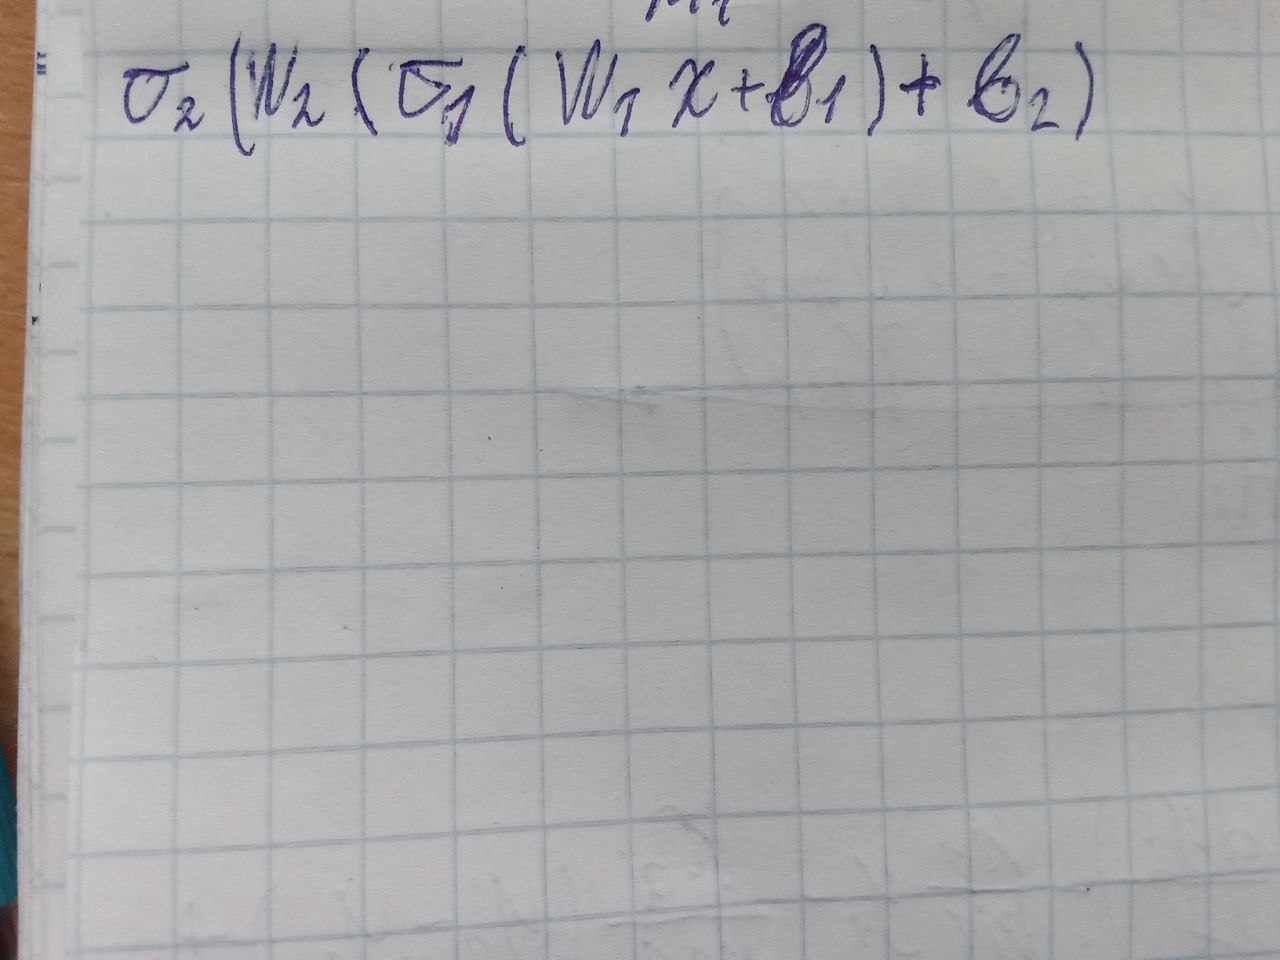 σ₂(W₂(σ₁(W₁x+b₁)+b₂)